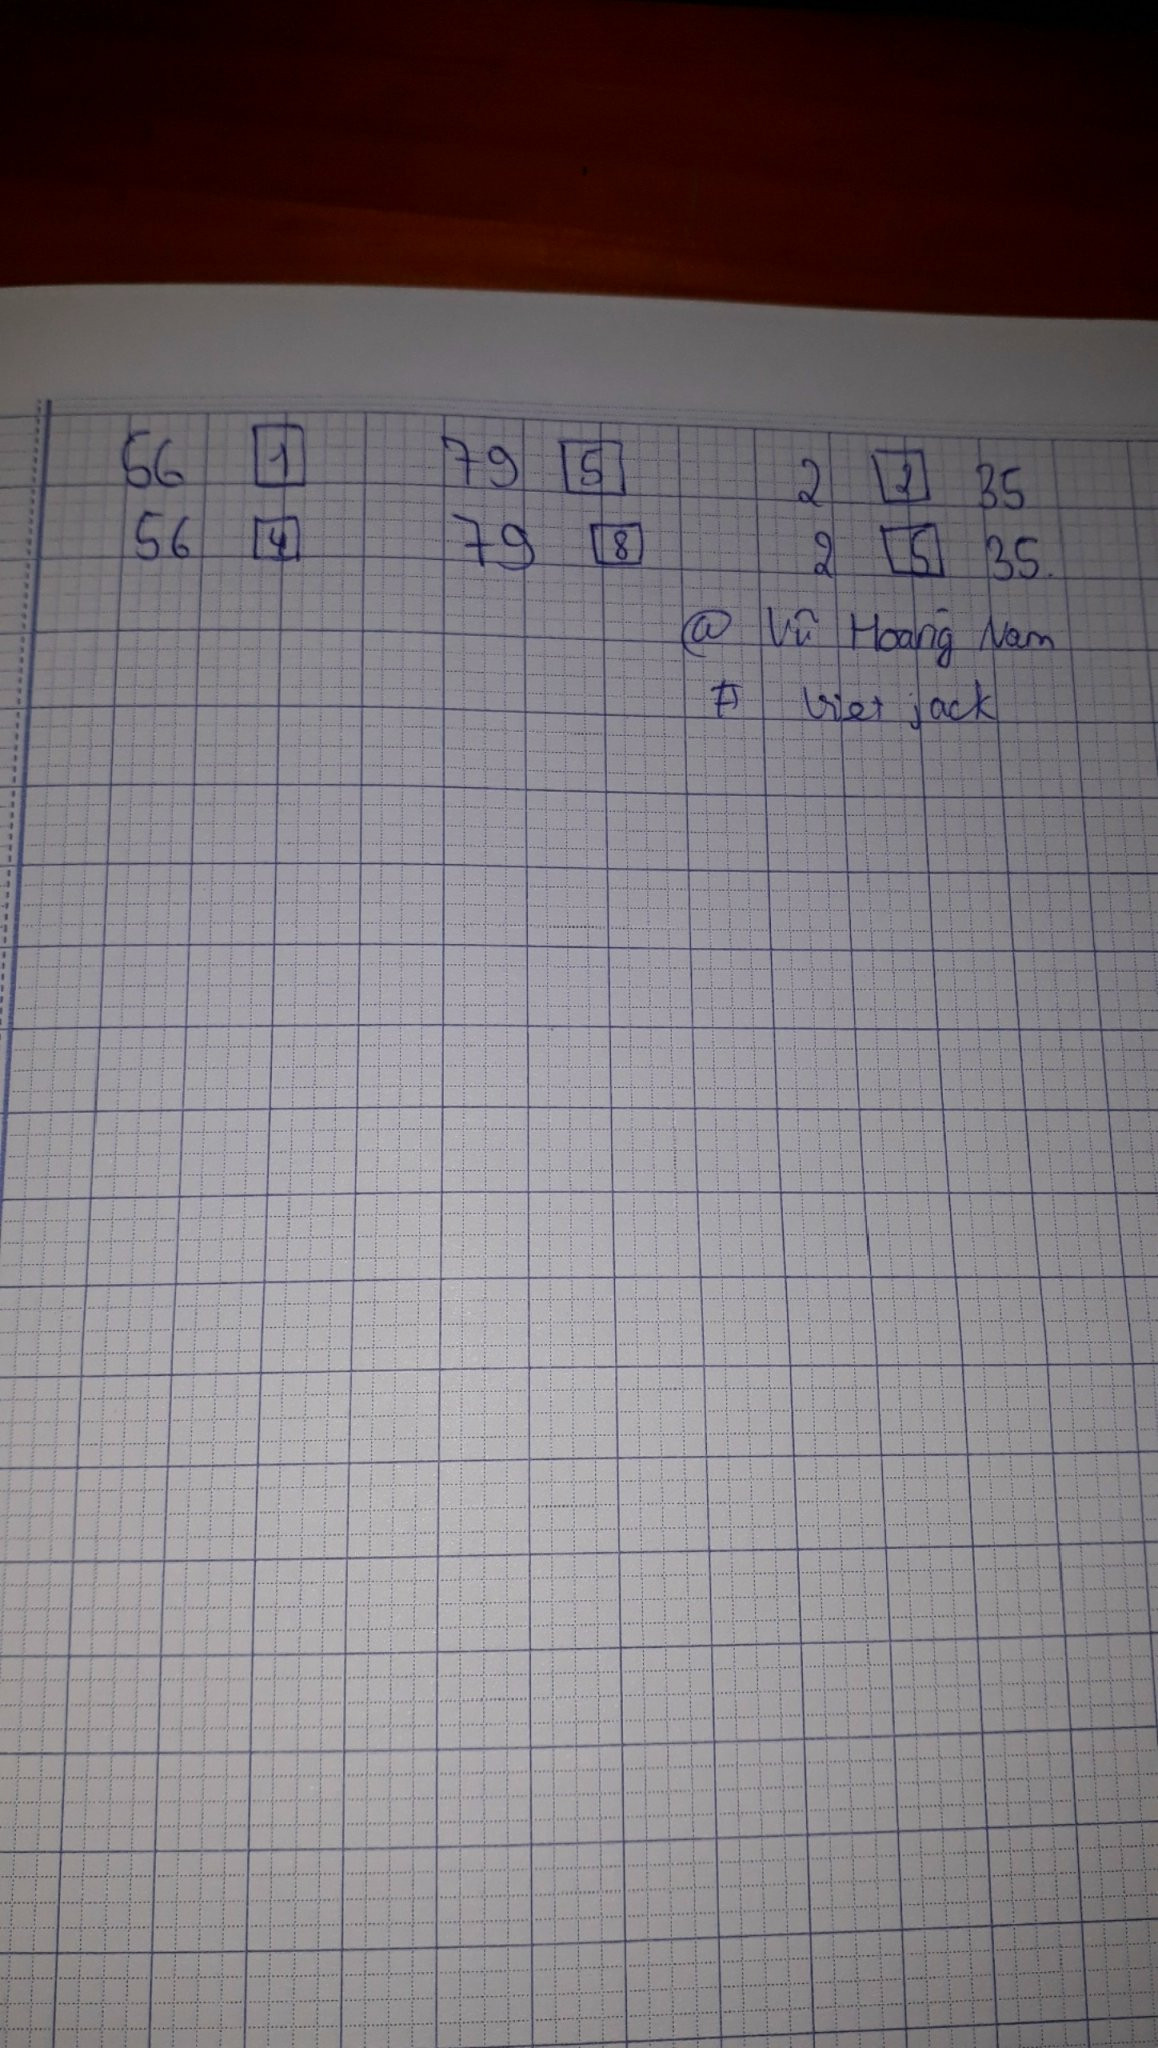 56 1 79 5 2 2 35
56 4 79 8 2 5 35.
@ Vũ Hoàng Nam
# Viet jack